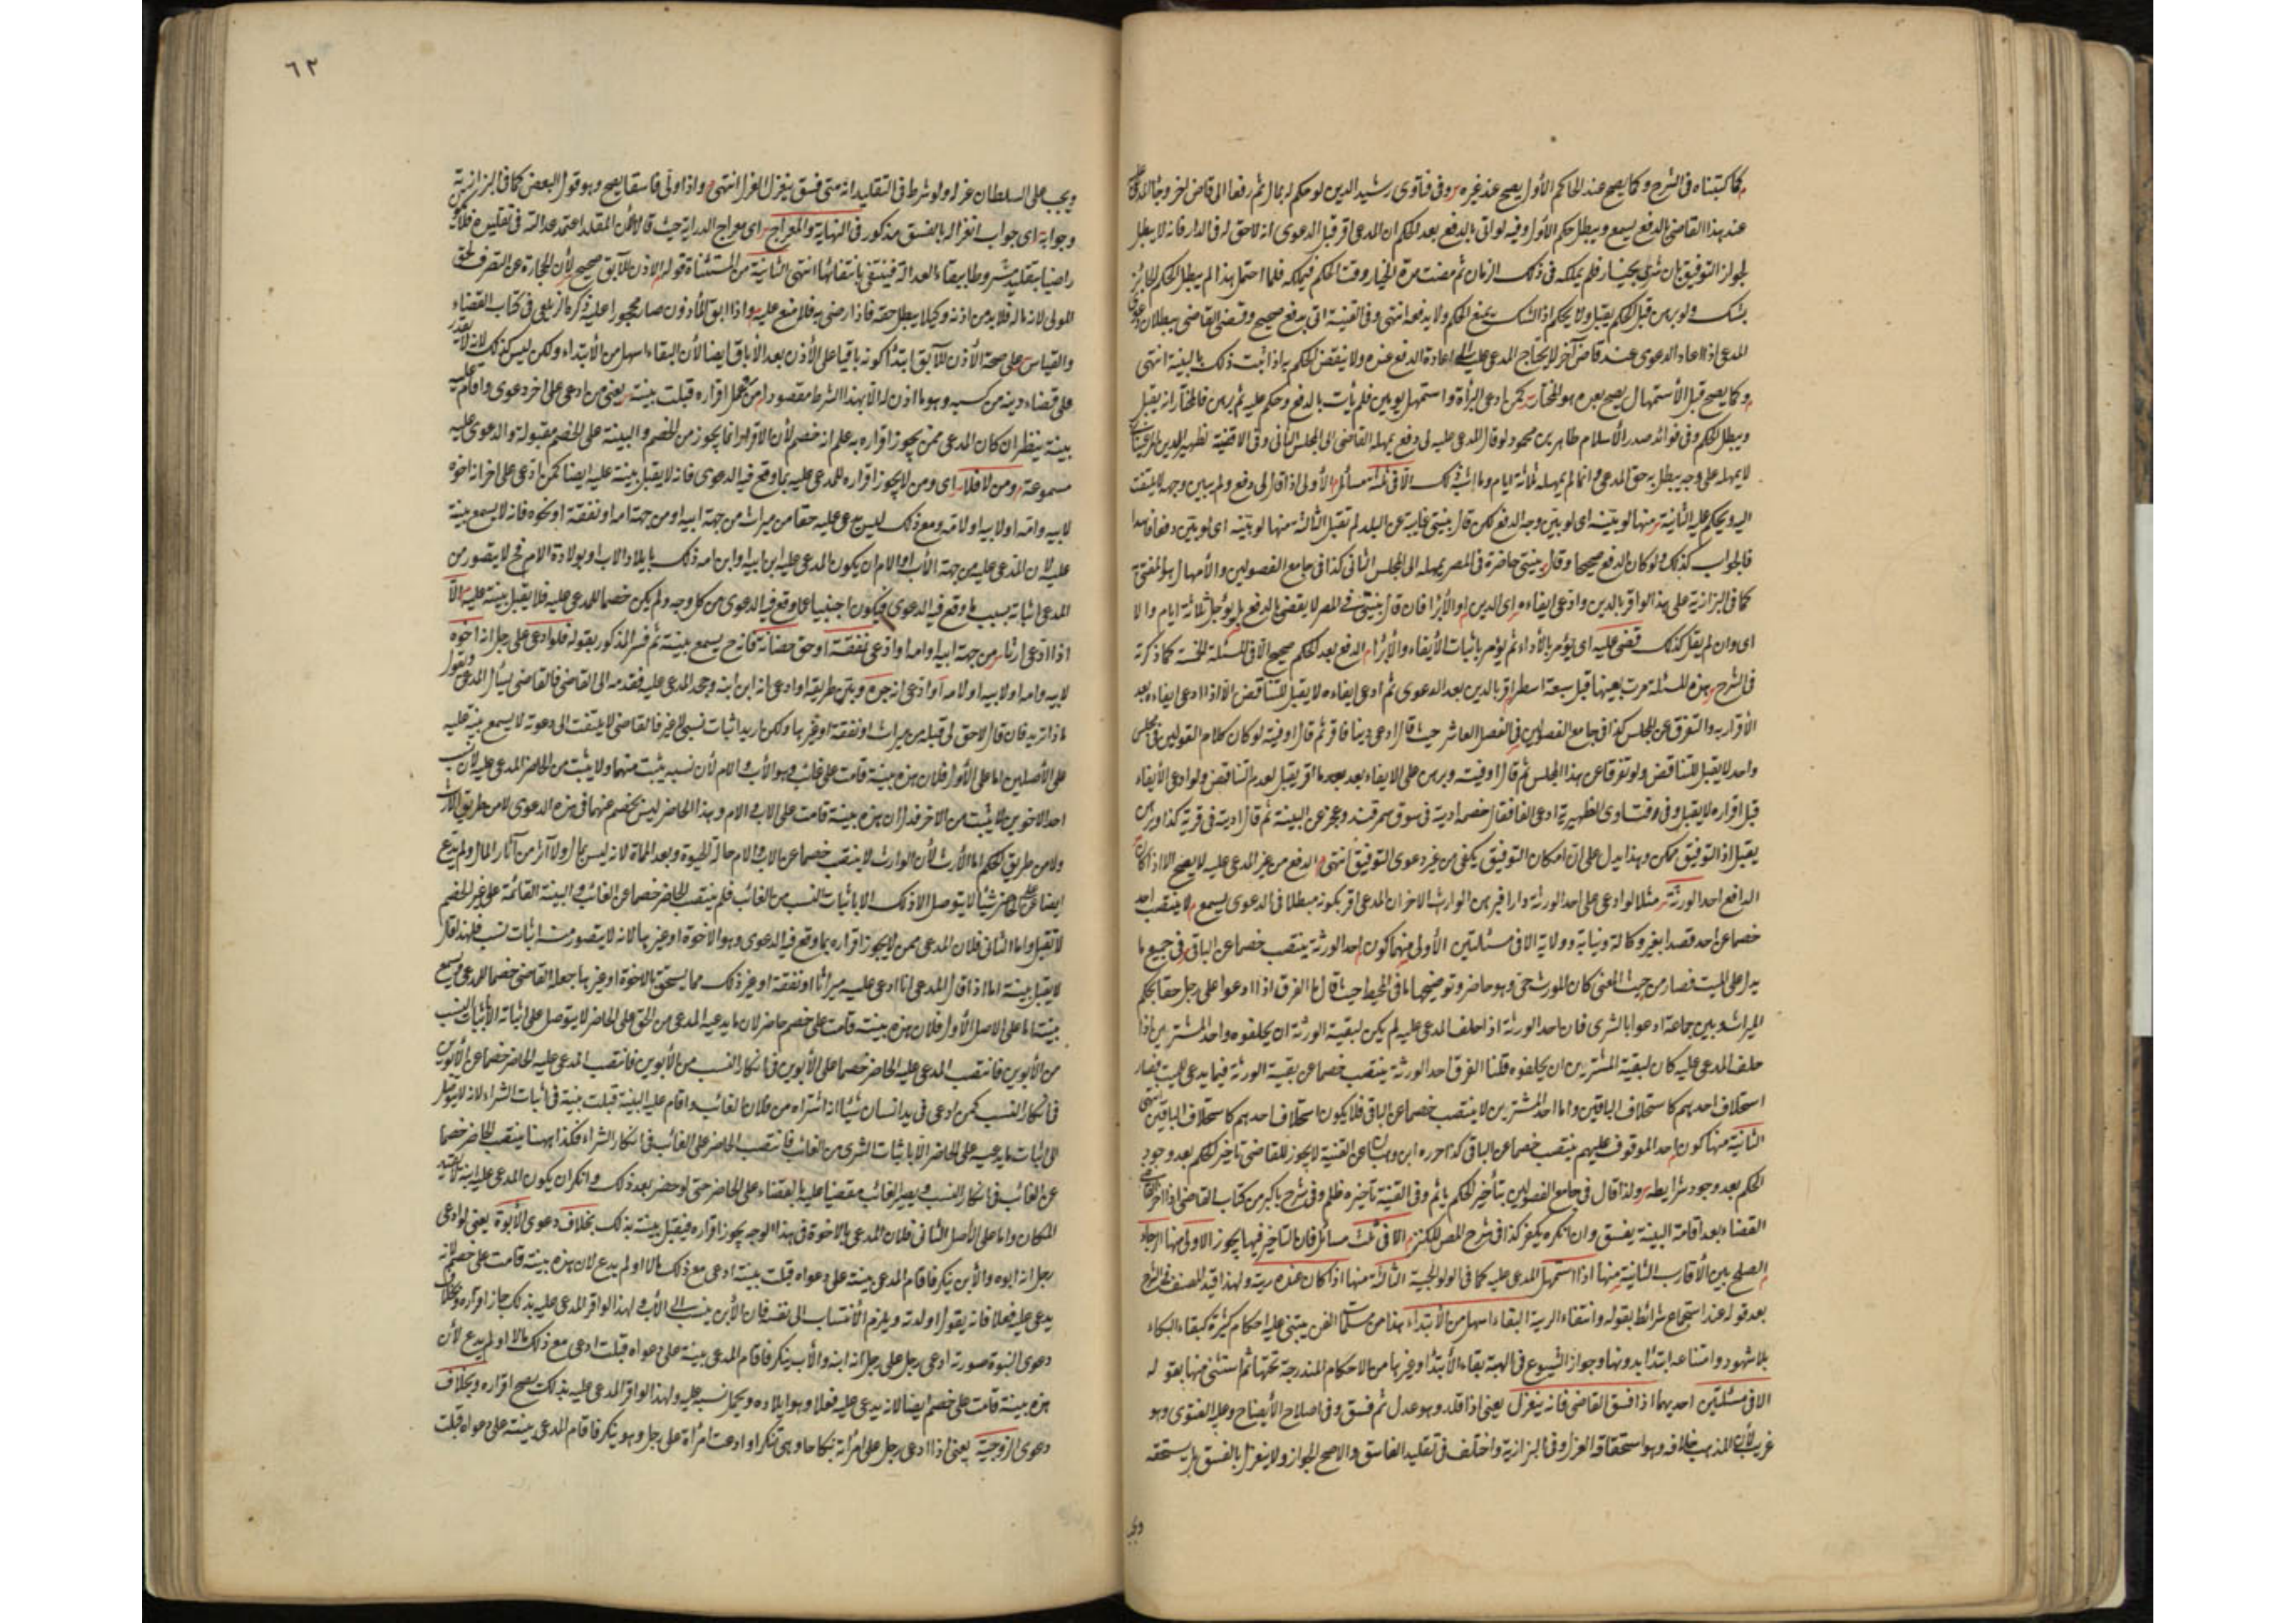 كما كتبناه فى الشرح وكما يصح عند الحاكم الأول يصح عند غيره وفى فتاوى رشيد الدين لو حكم له بمال ثم رفعا الى قاض اخر وجاء المدعى عليه
عند هذا القاضى بالدفع يسمع ويبطل حكم الأول وفيه لو اتى بالدفع بعد الحكم ان المدعى اقر قبل الدعوى انه لا حق له فى الدار فانه لا يبطل
لجواز التوفيق بان شرى بخيار فلم يملكه فى ذلك الزمان ثم مضت مدة الخيار وقت الحكم فيملكه فلما احتمل هذا لم يبطل الحكم الجائز
بشك ولو برهن قبل الحكم يقبل ولا يحكم اذ الشك يمنع الحكم ولا يدفعه انتهى وفى القنية اتى بدفع صحيح وقضى القاضى ببطلان دعوى
المدعى اذا اعاد الدعوى عند قاض آخر لا يحتاج المدعى عليه الى اعادة الدفع عنده ولا ينقض الحكم به اذا ثبت ذلك بالبينة انتهى
وكما يصح قبل الأستمهال يصح بعده هو المختار كمن ادعى البرأة واستمهل يومين فلم يأت بالدفع وحكم عليه ثم برهن فالمختار انه يقبل
ويبطل الحكم وفى فوائد صدر الأسلام طاهر بن محمود لو قال المدعى عليه لى دفع يمهله القاضى الى المجلس الثانى وفى الاقضية لظهير الدين المرغينانى
لا يمهله على وجه يبطل به حق المدعى وانما لم يمهله ثلثة ايام وما اشبه ذلك الا فى ثلثة مسائل الأولى اذا قال لى دفع ولم يبين وجهه لا يلتفت
اليه ويحكم عليه الثانية منها لو بينه اى لو بين وجه الدفع لكن قال بينتى غايبة عن البلد لم تقبل الثالثة منها لو بينه اى لو بين دفعا فاسدا
فالجواب كذلك ولو كان الدفع صحيحا وقال بينتى حاضرة فى المصر يمهله الى المجلس الثانى كذا فى جامع الفصولين والأمهال هو المفتى به
كما فى البزازية على هذا لو اقر بالدين وادعى ايفاءه اى الدين او الأبراء فان قال بينتى فى المصر لا يقضى بالدفع بل يؤجل ثلاثة ايام والا
اى وان لم يقل كذلك قضى عليه اى يؤمر بالأداء ثم يؤمر باثبات الأيفاء والأبراء الدفع بعد الحكم صحيح الا فى المسئلة المخمسة كما ذكرته
فى الشرح هذه المسئلة مرت بعينها قبل سبعة اسطر اقر بالدين بعد الدعوى ثم ادعى ايفاءه لا يقبل للتناقض الا اذا ادعى ايفاءه بعد
الأقرار به والتفرق عن المجلس كذا فى جامع الفصولين فى الفصل العاشر حيث قال ادعى دينا فاقر ثم قال اوفيته لو كان كلام القولين فى مجلس
واحد لا يقبل للتناقض ولو تفرقا عن هذا المجلس ثم قال اوفيت وبرهن على الايفاء بعد ما اقر يقبل لعدم التناقض ولو ادعى الأيفاء
قبل اقراره لا يقبل وفى فتاوى الظهيرية ادعى الفا فقال خصمه اديته فى سوق سمرقند وعجز عن البينة ثم قال اديته فى قرية كذا وبرهن
يقبل اذ التوفيق ممكن وهذا يدل على ان امكان التوفيق يكفى من غير دعوى التوفيق انتهى الدفع من غير المدعى عليه لا يصح الا اذا كان
الدافع احد الورثة مثلا لو ادعى على احد الورثة دارا فبرهن الوارث الاخر ان المدعى اقر بكونه مبطلا فى الدعوى يسمع لا ينتصب احد
خصما عن احد قصدا بغير وكالة ونيابة وولاية الا فى مسئلتين الأولى منهما كون احد الورثة ينتصب خصما عن الباقى فى جميع ما
يدعى على الميت فصار من حيث المعنى كان المورث حى وهو حاضر وتوضيحها ما فى المحيط حيث قال ما الفرق اذا ادعوا على رجل حقا بحكم
الميراث وبين جماعة ادعوا بالشرى فان احد الورثة اذا حلف المدعى عليه لم يكن لبقية الورثة ان يحلفوه واحد المشترين اذا
حلف المدعى عليه كان لبقية المشترين ان يحلفوه قلنا الفرق احد الورثة ينتصب خصما عن بقية الورثة فيما يدعى للميت فصار
استحلاف احدهم كاستحلاف الباقين واما احد المشترين لا ينتصب خصما عن الباقى فلا يكون استحلاف احدهم كاستحلاف الباقين انتهى
الثانية منها كون احد الموقوف عليهم ينتصب خصما عن الباقى كذا حرره ابن وهبان عن القنية لا يجوز للقاضى تأخير الحكم بعد وجود
الحكم بعد وجود شرايطه ولذا قال فى جامع الفصولين بتأخير الحكم يأثم وفى القنية تأخيره ظلم وفى شرح باكير من كتاب القاضى اذا اخر القاضى
القضاء بعد اقامة البينة يفسق وان انكره يكفر كذا فى شرح المص للكنز الا فى ثلث مسائل فان التأخير فيها يجوز الاولى منها لرجاء
الصلح بين الأقارب الثانية منها اذا استمهل المدعى عليه كما فى الولوالجية الثالثة منها اذا كان عنده ريبة ولهذا قيد المصنف فى الشرح
بعد قوله عند استجماع شرائط بقوله وانتفاء الريبة البقاء اسهل من الأبتداء هذا من مسلمات الفن يبتنى عليه احكام كثيرة كبقاء النكاح
بلا شهود وامتناعه ابتداء بدونها وجواز الشيوع فى الهبة بقاء لا ابتداء وغيرها من الاحكام المندرجة تحتها ثم استثنى منها بقوله
الا فى مسئلتين احديهما اذا فسق القاضى فانه ينعزل يعنى اذا قلد وهو عدل ثم فسق وفى اصلاح الأيضاح وعليه الفتوى وهو
غريب لأن المذهب خلافه وهو استحقاقه العزل وفى البزازية واختلف فى تقليد الفاسق والاصح الجواز ولا ينعزل بالفسق بل يستحقه
ويجب
٦٣
ويجب على السلطان عزله ولو شرط فى التقليد انه متى فسق ينعزل انعزل انتهى واذا ولى فاسقا يصح وهو قول البعض كما فى البزازية
وجوابه اى جواب انعزاله بالفسق مذكور فى النهاية والمعراج اى معراج الدراية حيث قالا لأن المقلد اعتمد عدالته فى تقليده فلم يكن
راضيا بتقليده مشروطا ببقاء العدالة فينتفى بانتفائها انتهى الثانية من المستثناة قوله الاذن للآبق صحيح لأن الحجارة عن التصرف لحق
المولى لانه ماله فلا بد من اذنه وكيلا يبطل حقه فاذا رضى به فلا منع عليه واذا ابق المأذون صار محجورا عليه ذكره الزيلعى فى كتاب القضاء
والقياس على صحة الأذن للآبق ابتداء كونه باقيا على الأذن بعد الأباق ايضا لأن البقاء اسهل من الأبتداء ولكن ليس كذلك لانه لا يقدر
على قضاء دينه من كسبه وهو ما اذن له الا بهذا الشرط مقصودا من عمل اقراره قبلت بينته يعنى من ادعى على اخر دعوى واقام عليه
بينة ينظر ان كان المدعى ممن يجوز اقراره به علم انه خصم لأن الاقرار انما يجوز من الخصم والبينة على الخصم مقبولة والدعوى عليه
مسموعة ومن لا فلا اى ومن لا يجوز اقراره للمدعى عليه بما وقع فيه الدعوى فانه لا يقبل بينة عليه ايضا كمن ادعى على اخر انه اخوه
لابيه وامه او لابيه او لامه ومع ذلك ليس يدعى عليه حقا من ميراث من جهة ابيه او من جهة امه او نفقة او نحوه فانه لا يسمع بينة
عليه لان المدعى عليه من جهة الأب او الام ان يكون المدعى عليه ابن ابيه وابن امه ذلك بايلاد الاب او بولادة الام فح لا يتصور من
المدعى اثباته بسبب ما وقع فيه الدعوى فيكون اجنبيا عما وقع فيه الدعوى من كل وجه ولم يكن خصما للمدعى عليه فلا يقبل بينة عليه الا
اذا ادعى ارثا من جهة ابيه او امه او ادعى نفقة او حق حضانة فانه ح يسمع بينته ثم فسر المذكور بقوله فلو ادعى على رجل انه اخوه
لابيه وامه او لابيه او لامه او ادعى انه جده وبين طريقه او ادعى انه ابن ابنه وجحد المدعى عليه فقدمه الى القاضى فالقاضى يسأل المدعى ويقول
ماذا تريد فان قال لا حق لى قبله من ميراث او نفقة او غيرها ولكن اريد اثبات نسبى لا غير فالقاضى لا يلتفت الى دعوته لا يسمع بينة عليه
على الأصلين اما على الأول فلان هذه بينة قامت على غائب وهو الأب او الام لأن نسبه يثبت منهما ولا يثبت من الحاضر المدعى عليه لأن نسب
احد الاخوين لا يثبت من الاخر فدل ان هذه بينة قامت على الاب او الام وهذا الحاضر ليس بخصم عنهما فى هذه الدعوى لا من طريق الأرث
ولا من طريق الحكم اما الأرث لأن الوارث لا ينتصب خصما عن الاب او الام حالة الحيوة وبعد المماة لانه ليس بمال ولا آثارا من آثار المال ولم يدع
ايضا على الحاضر شيأ لا يتوصل الا ذلك الا باثبات النسب من الغائب فلم ينتصب الحاضر خصما عن الغائب والبينة القائمة على غير الخصم
لا تقبل واما الثانى فلان المدعى ممن لا يجوز اقراره بما وقع فيه الدعوى وهو الاخوة او غيرها لانه لا يتصور منه اثبات نسب فلهذا قال
لا يقبل بينته اما اذا قال المدعى انا ادعى عليه ميراثا او نفقة او غير ذلك مما يستحق بالاخوة او غيرها جعله القاضى خصما للمدعى ويسمع
بينته اما على الاصل الأول فلان هذه بينة قامت على خصم حاضر لان ما يدعيه المدعى من الحق على الحاضر لا يتوصل على اثباته الا باثبات النسب
من الأبوين فانتصب المدعى عليه الحاضر خصما على الأبوين فى انكار النسب من الأبوين فانتصب المدعى عليه الحاضر خصما عن الأبوين
فى انكار النسب كمن ادعى فى يد انسان شيئا انه اشتراه من فلان الغائب واقام عليه البينة قبلت بينة فى اثبات الشراء لانه لا يتوصل
الى اثبات ما يدعيه على الحاضر الا باثبات الشرى من الغائب فانتصب الحاضر على الغائب فى انكار الشراء فكذا ههنا ينتصب الحاضر خصما
عن الغائب فى انكار النسب ويصير الغائب مقضيا عليه بالقضاء على الحاضر حتى لو حضر بعد ذلك وانكر ان يكون المدعى عليه ابنه لا يقبل
المكان واما على الأصل الثانى فلان المدعى بالاخوة فى هذا الوجه يجوز اقراره فيقبل بينته بذلك بخلاف دعوى الأبوة يعنى لو ادعى
رجل انه ابوه والأبن ينكر فاقام المدعى بينة على دعواه قبلت بينته ادعى مع ذلك مالا او لم يدع لان هذه بينة قامت على خصم لانه
يدعى عليه فعلا فانه يقول اولدته ويلزم الأنتساب الى نفسه فان الأبن ينسب الى الأب ولهذا لو اقر المدعى عليه بذلك جاز اقراره وبخلاف
دعوى البنوة صورته ادعى رجل على رجل انه ابنه والأب ينكر فاقام المدعى بينة على دعواه قبلت ادعى مع ذلك مالا او لم يدع لأن
هذه بينة قامت على خصم ايضا لانه يدعى عليه فعلا وهو ايلاده ويحمل نسبه عليه ولهذا لو اقر المدعى عليه بذلك يصح اقراره وبخلاف
دعوى الزوجية يعنى اذا ادعى رجل على امرأة نكاحا وهى تنكر او ادعت امرأة على رجل وهو ينكر فاقام المدعى بينة على دعواه قبلت